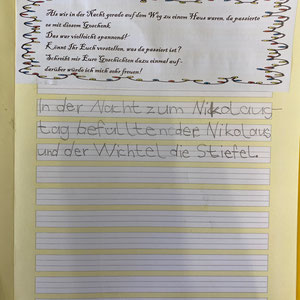 Als wir in der Nacht gerade auf dem Weg zu einem Haus waren, da passierte
es mit diesem Geschenk.
Das war vielleicht spannend!
Könnt Ihr Euch vorstellen, was da passiert ist?
Schreibt mir Eure Geschichten dazu einmal auf -
darüber würde ich mich sehr freuen!
In der Nacht zum Nikolaus-
tag befüllten der Nikolaus
und der Wichtel die Stiefel.